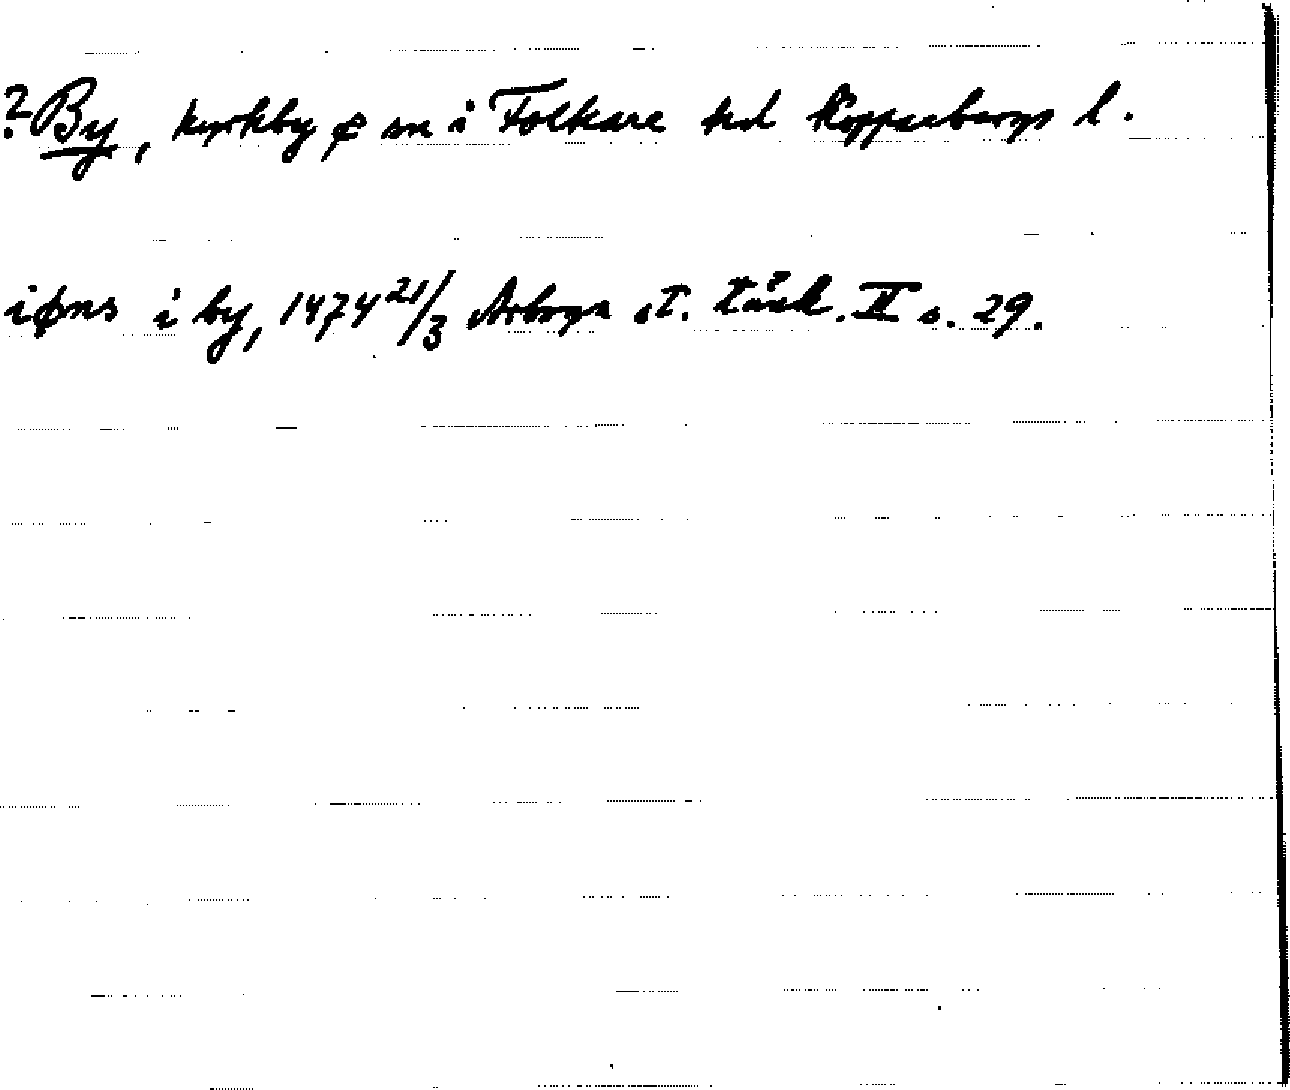 ? By, kyrkby o sn i Folkare hd Kopparbergs l.
iøns i by, 1474 21/3 Arboga st. tänk. II s. 29.